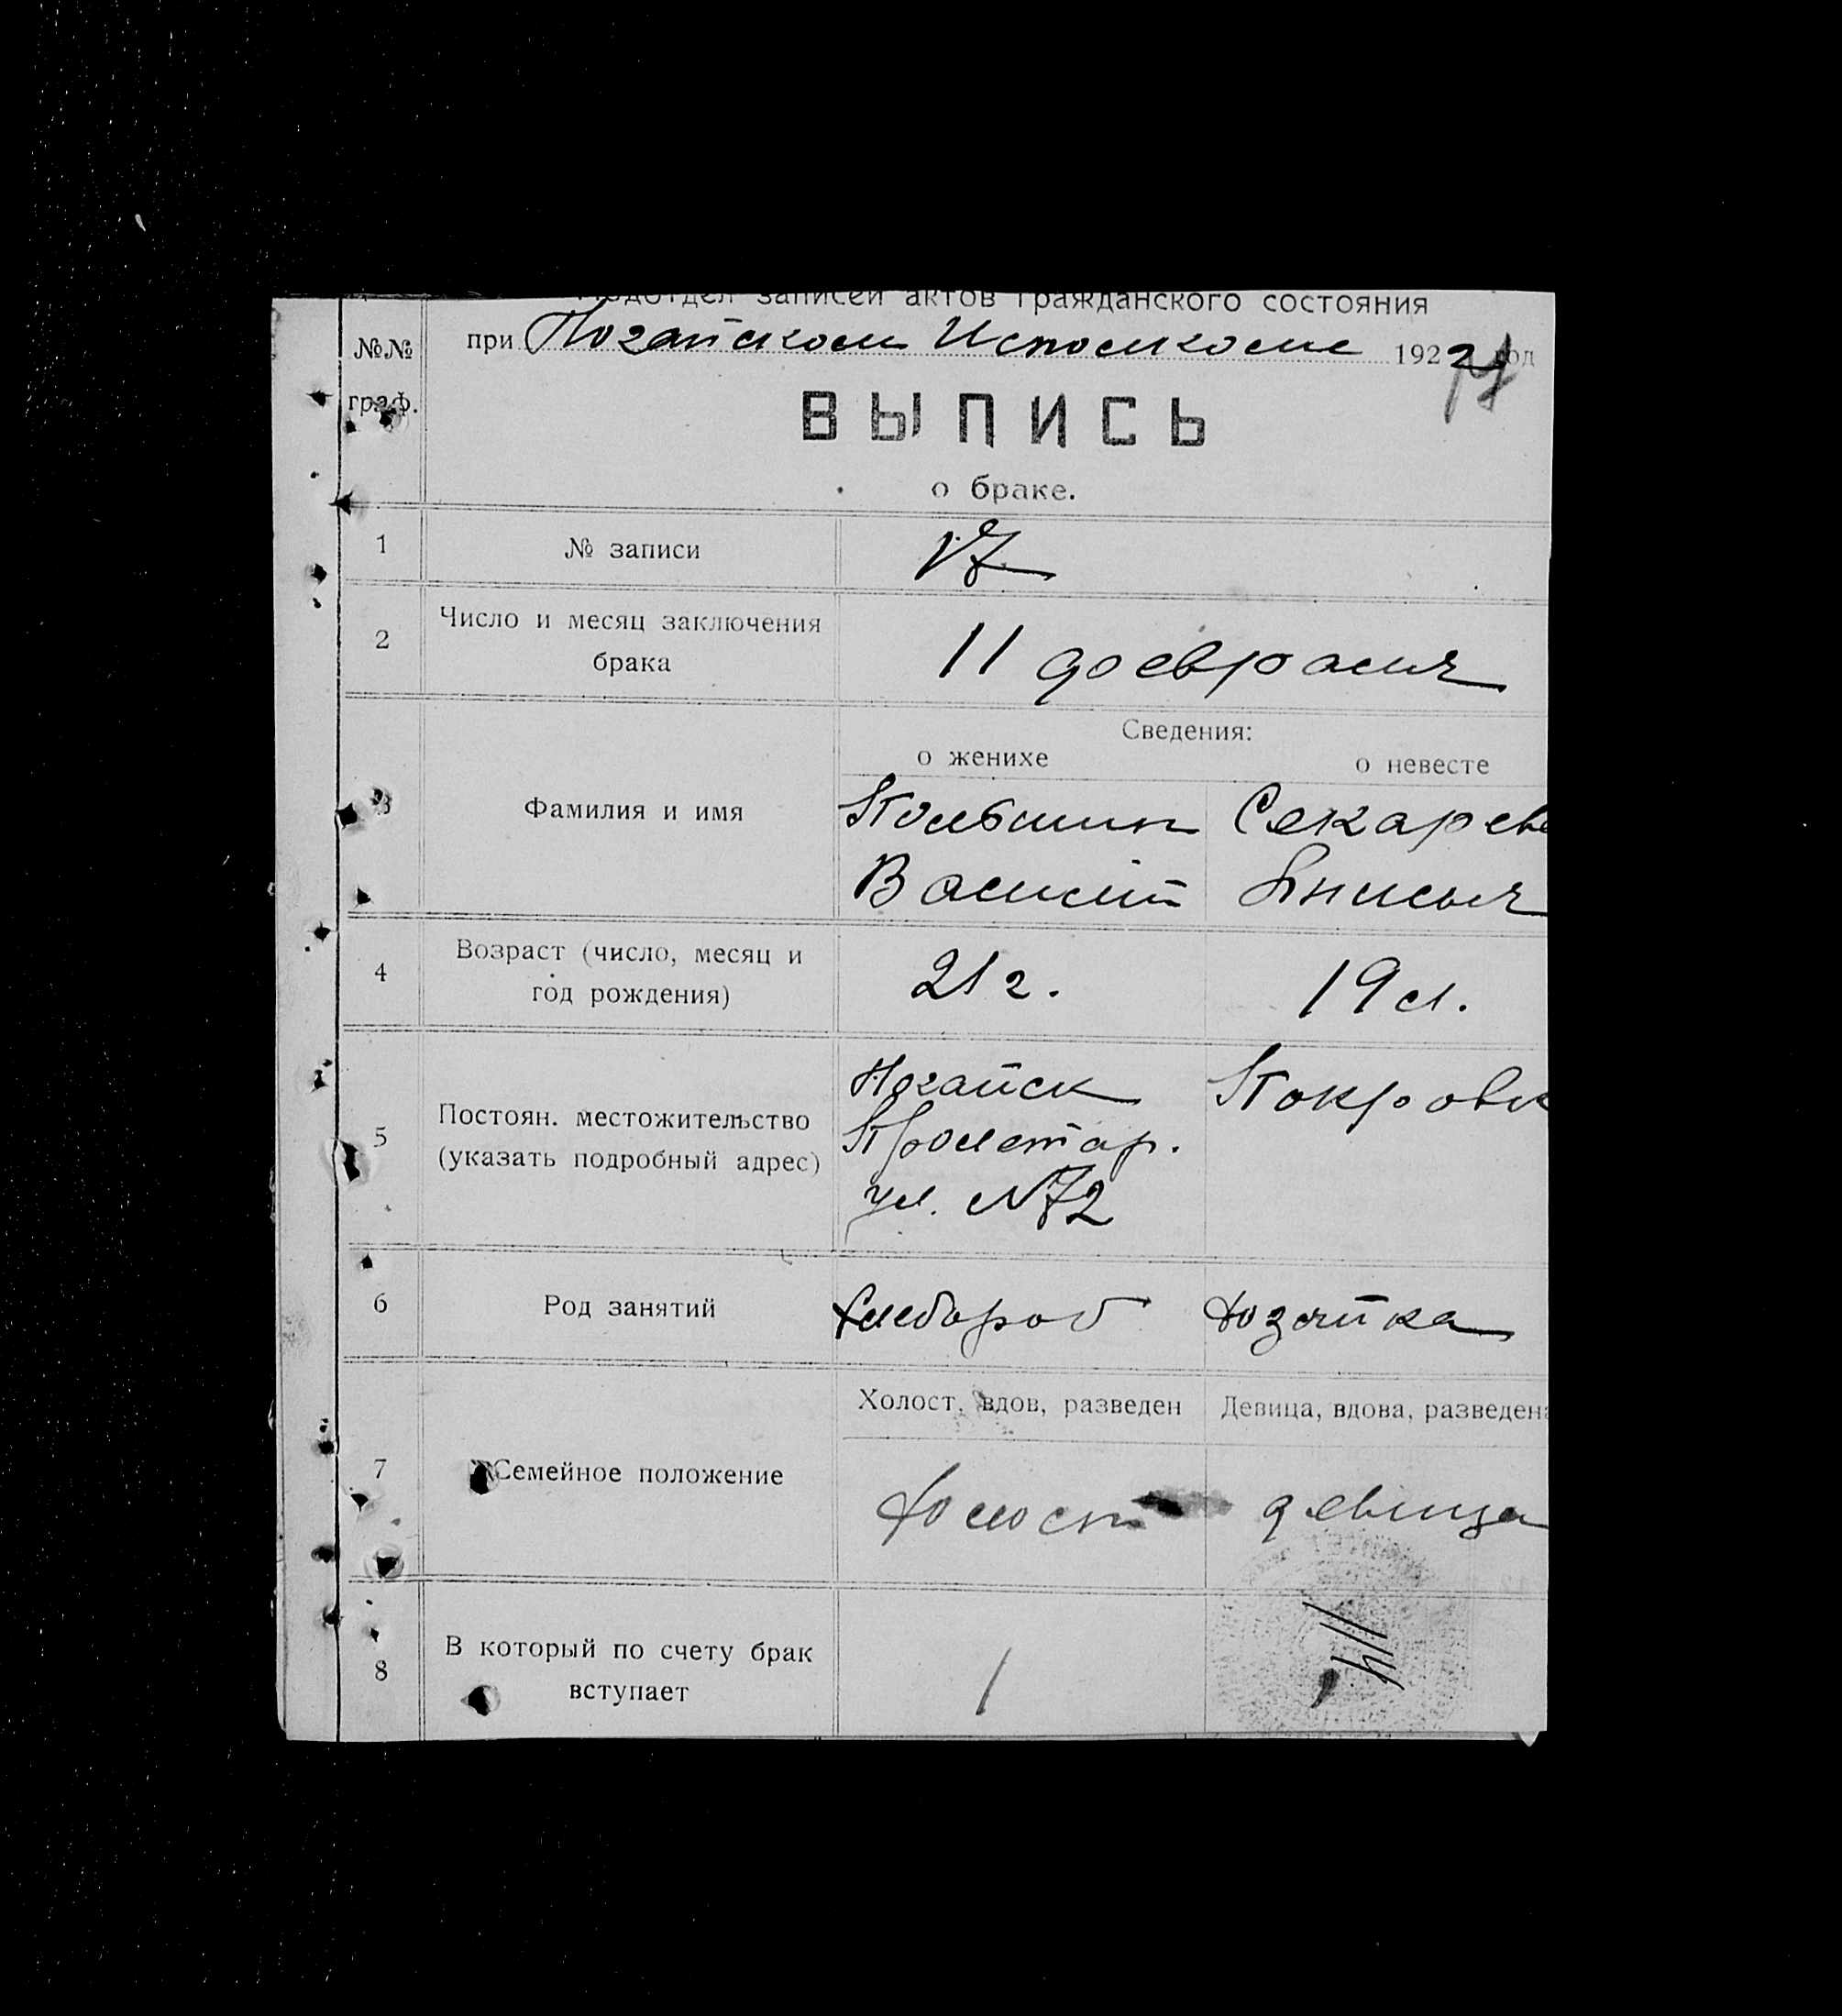 Подотдел записей актов гражданского состояния
№№ граф.
при Ногайском Исполкоме 1922 год
17
ВЫПИСЬ
о браке.
1 № записи 17
2 Число и месяц заключения брака 11 февраля
Сведения:
о женихе о невесте
3 Фамилия и имя
Кольбшин Секарева
Василий Анисья
4 Возраст (число, месяц и год рождения) 21 г. 19 л.
5 Постоян. местожительство (указать подробный адрес)
Ногайск Покровк
Пролетар.
ул. №72
6 Род занятий Хлебороб Хозяйка
Холост, вдов, разведен Девица, вдова, разведена
7 Семейное положение Холост девица
8 В который по счету брак вступает 1